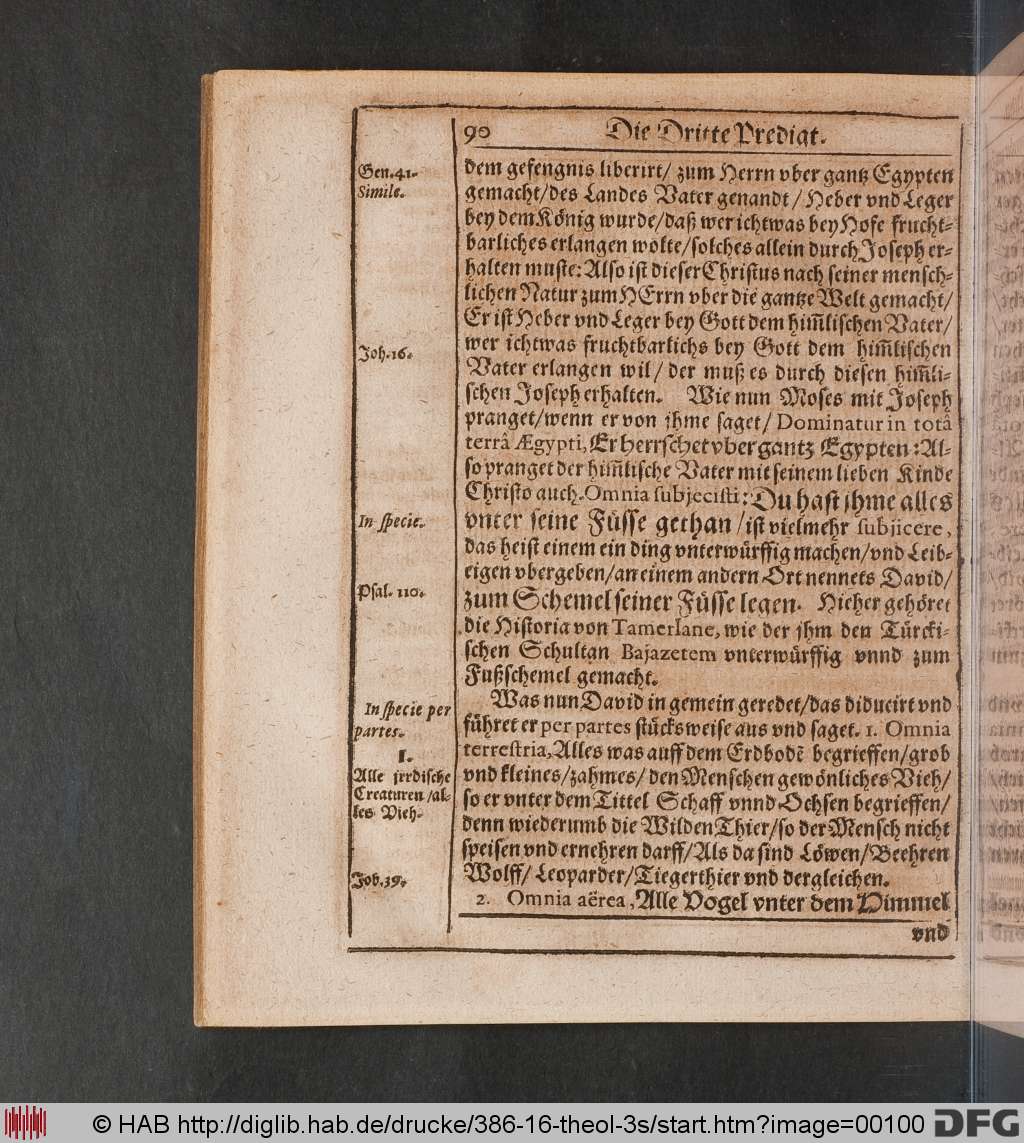 90 Die Dritte Predigt.
Gen. 41.
Simile.
Joh. 16.
In specie.
Psal. 110.
In specie per
partes.
I.
Alle jrrdische
Creaturen/al-
les Vieh.
Job. 39.
dem gefengnis liberirt/ zum Herrn vber gantz Egypten
gemacht/des Landes Vater genandt / Heber vnd Leger
bey dem König wurde/daß wer ichtwas bey Hofe frucht-
barliches erlangen wolte/solches allein durch Joseph er-
halten muste: Also ist dieser Christus nach seiner mensch-
lichen Natur zum HErrn vber die gantze Welt gemacht/
Er ist Heber vnd Leger bey Gott dem him̃lischen Vater/
wer ichtwas fruchtbarlichs bey Gott dem him̃lischen
Vater erlangen wil/ der muß es durch diesen him̃li-
schen Joseph erhalten. Wie nun Moses mit Joseph
pranget/wenn er von jhme saget/ Dominatur in totâ
terrâ Ægypti, Er herrschet vber gantz Egypten: Al-
so pranget der him̃lische Vater mit seinem lieben Kinde
Christo auch. Omnia subjecisti: Du hast jhme alles
vnter seine Füsse gethan /ist vielmehr subjicere,
das heist einem ein ding vnterwürffig machen/vnd Leib-
eigen vbergeben/an einem andern Ort nennets David/
zum Schemel seiner Füsse legen. Hieher gehöret
die Historia von Tamerlane, wie der jhm den Türcki-
schen Schultan Bajazetem vnterwürffig vnnd zum
Fußschemel gemacht.
Was nun David in gemein geredet/das diducirt vnd
führet er per partes stücksweise aus vnd saget. 1. Omnia
terrestria, Alles was auff dem Erdbodẽ begrieffen/grob
vnd kleines/zahmes/ den Menschen gewönliches Vieh/
so er vnter dem Tittel Schaff vnnd Ochsen begrieffen/
denn wiederumb die Wilden Thier/so der Mensch nicht
speisen vnd ernehren darff/Als da sind Löwen/Beehren
Wolff/ Leoparder/Tiegerthier vnd dergleichen.
2. Omnia aërea, Alle Vogel vnter dem Himmel
vnd
© HAB http://diglib.hab.de/drucke/386-16-theol-3s/start.htm?image=00100
DFG